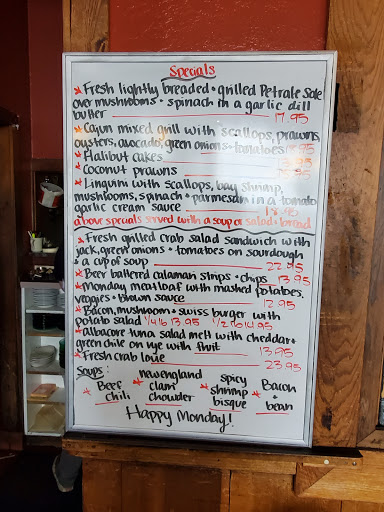 Specials
* Fresh lightly breaded + grilled Petrale Sole
over mushrooms + spinach in a garlic dill
butter 17.95
* Cajun mixed grill with scallops, prawns,
oysters, avocado, green onions + tomatoes
* Halibut cakes
* Coconut prawns
* Linguini with scallops, bay shrimp,
mushrooms, spinach + parmesan in a tomato
garlic cream sauce 18.95
above specials served with a soup or salad + bread
* Fresh grilled crab salad sandwich with
jack, green onions + tomatoes on sourdough
+ a cup of soup 22.95
* Beer battered calamari strips + chips 13.95
* Monday meatloaf with mashed potatoes,
veggies + brown sauce 12.95
* Bacon, mushroom + swiss burger with
potato salad 1/4 lb 13.95 1/2 lb 14.95
* Albacore tuna salad melt with cheddar +
green chile on rye with fruit 13.95
* Fresh crab louie 23.95
Soups:
* Beef chili
* new england clam chowder
* spicy shrimp bisque
* Bacon + bean
Happy Monday!